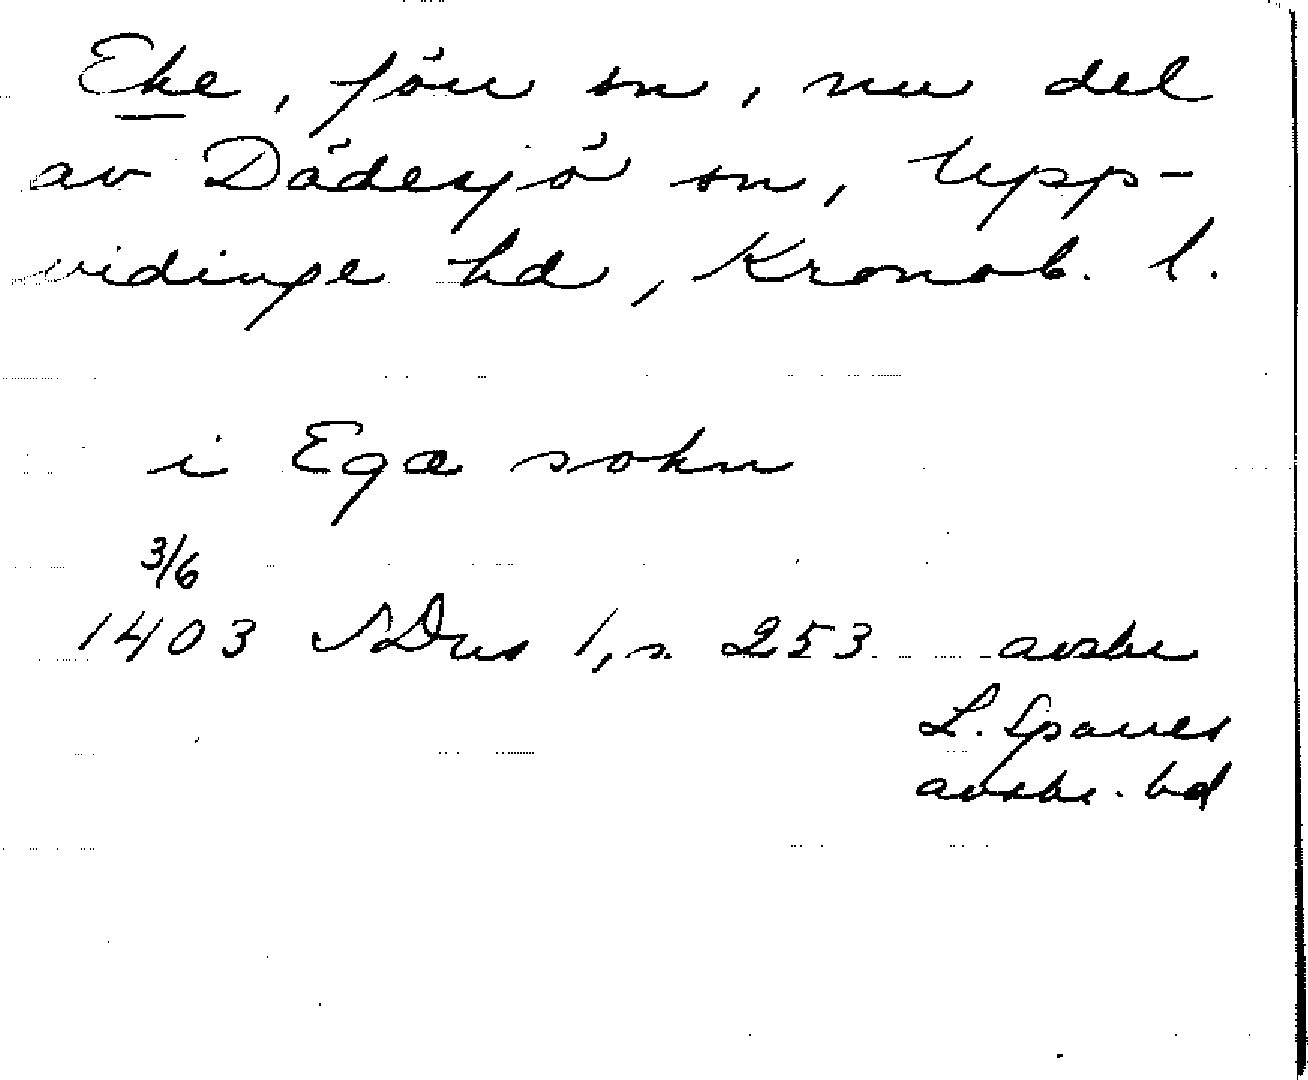 Eke, förr sn, nu del
av Dädesjö sn, Upp-
vidinge hd, Kronob. l.
i Ega sokn
3/6
1403 SDns 1, s. 253 avskr
L. Sparres
avskr. bd